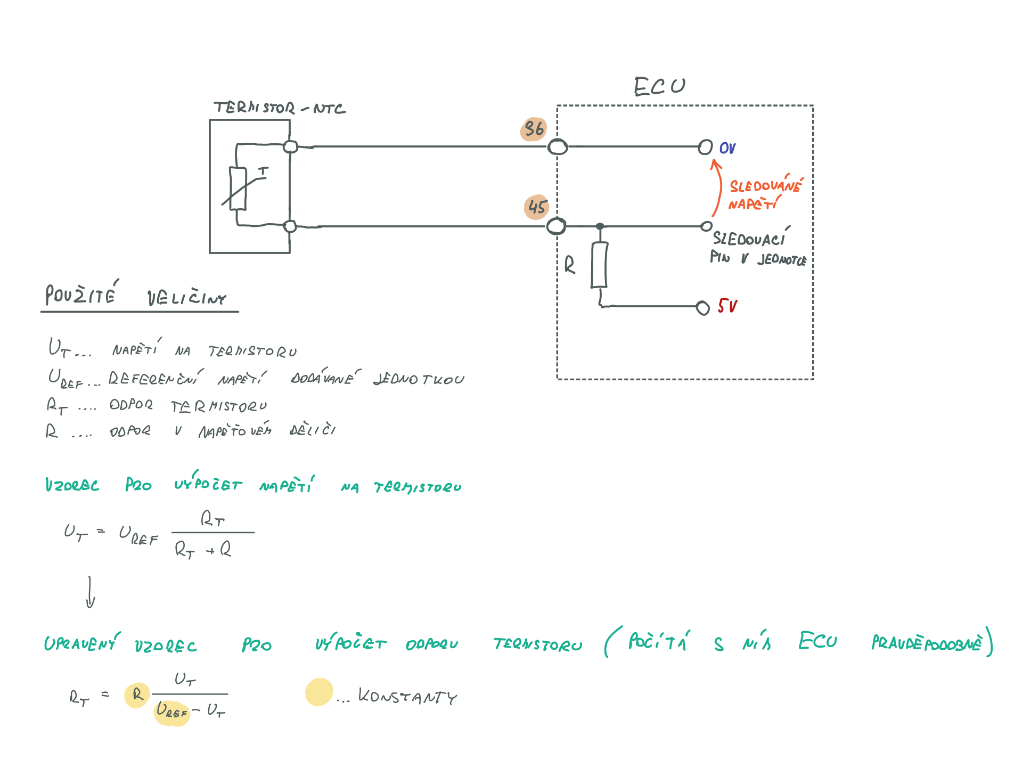 ECU
TERMISTOR-NTC
36
0V
T
SLEDOVANÉ
NAPĚTÍ
45
SLEDOVACÍ
PIN V JEDNOTCE
R
5V
POUŽITÉ VELIČINY
U_T ... NAPĚTÍ NA TERMISTORU
U_REF ... REFERENČNÍ NAPĚTÍ DODÁVANÉ JEDNOTKOU
R_T .... ODPOR TERMISTORU
R .... ODPOR V NAPĚŤOVÉM DĚLIČI
VZOREC PRO VÝPOČET NAPĚTÍ NA TERMISTORU
U_T = U_REF R_T / (R_T + R)
↓
UPRAVENÝ VZOREC PRO VÝPOČET ODPORU TERMSTORU (POČÍTÁ S NÍM ECU PRAVDĚPODOBNĚ)
R_T = R U_T / (U_REF - U_T)
... KONSTANTY